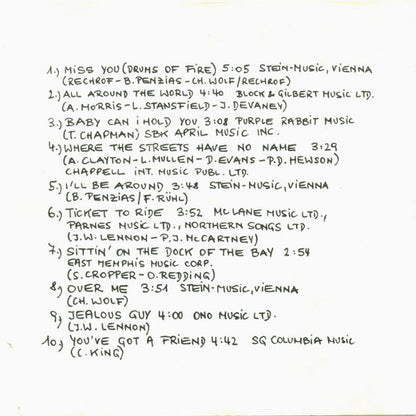 1.) MISS YOU (DRUMS OF FIRE) 5:05 STEIN-MUSIC, VIENNA
(RECHROF-B.PENZIAS-CH.WOLF/RECHROF)
2.) ALL AROUND THE WORLD 4:40 BLOCK & GILBERT MUSIC LTD.
(A. MORRIS-L. STANSFIELD-J. DEVANEY)
3.) BABY CAN I HOLD YOU 3:08 PURPLE RABBIT MUSIC
(T. CHAPMAN) SBK APRIL MUSIC INC.
4.) WHERE THE STREETS HAVE NO NAME 3:29
(A. CLAYTON-L. MULLEN-D. EVANS-P.D. HEWSON)
CHAPPELL INT. MUSIC PUBL. LTD.
5.) I'LL BE AROUND 3:48 STEIN-MUSIC, VIENNA
(B. PENZIAS/F. RÜHL)
6.) TICKET TO RIDE 3:52 MCLANE MUSIC LTD.,
PARNES MUSIC LTD., NORTHERN SONGS LTD.
(J.W. LENNON-P.J. McCARTNEY)
7.) SITTIN' ON THE DOCK OF THE BAY 2:54
EAST MEMPHIS MUSIC CORP.
(S. CROPPER-O. REDDING)
8.) OVER ME 3:51 STEIN-MUSIC, VIENNA
(CH. WOLF)
9.) JEALOUS GUY 4:00 ONO MUSIC LTD.
(J.W. LENNON)
10.) YOU'VE GOT A FRIEND 4:42 SG COLUMBIA MUSIC
(C. KING)